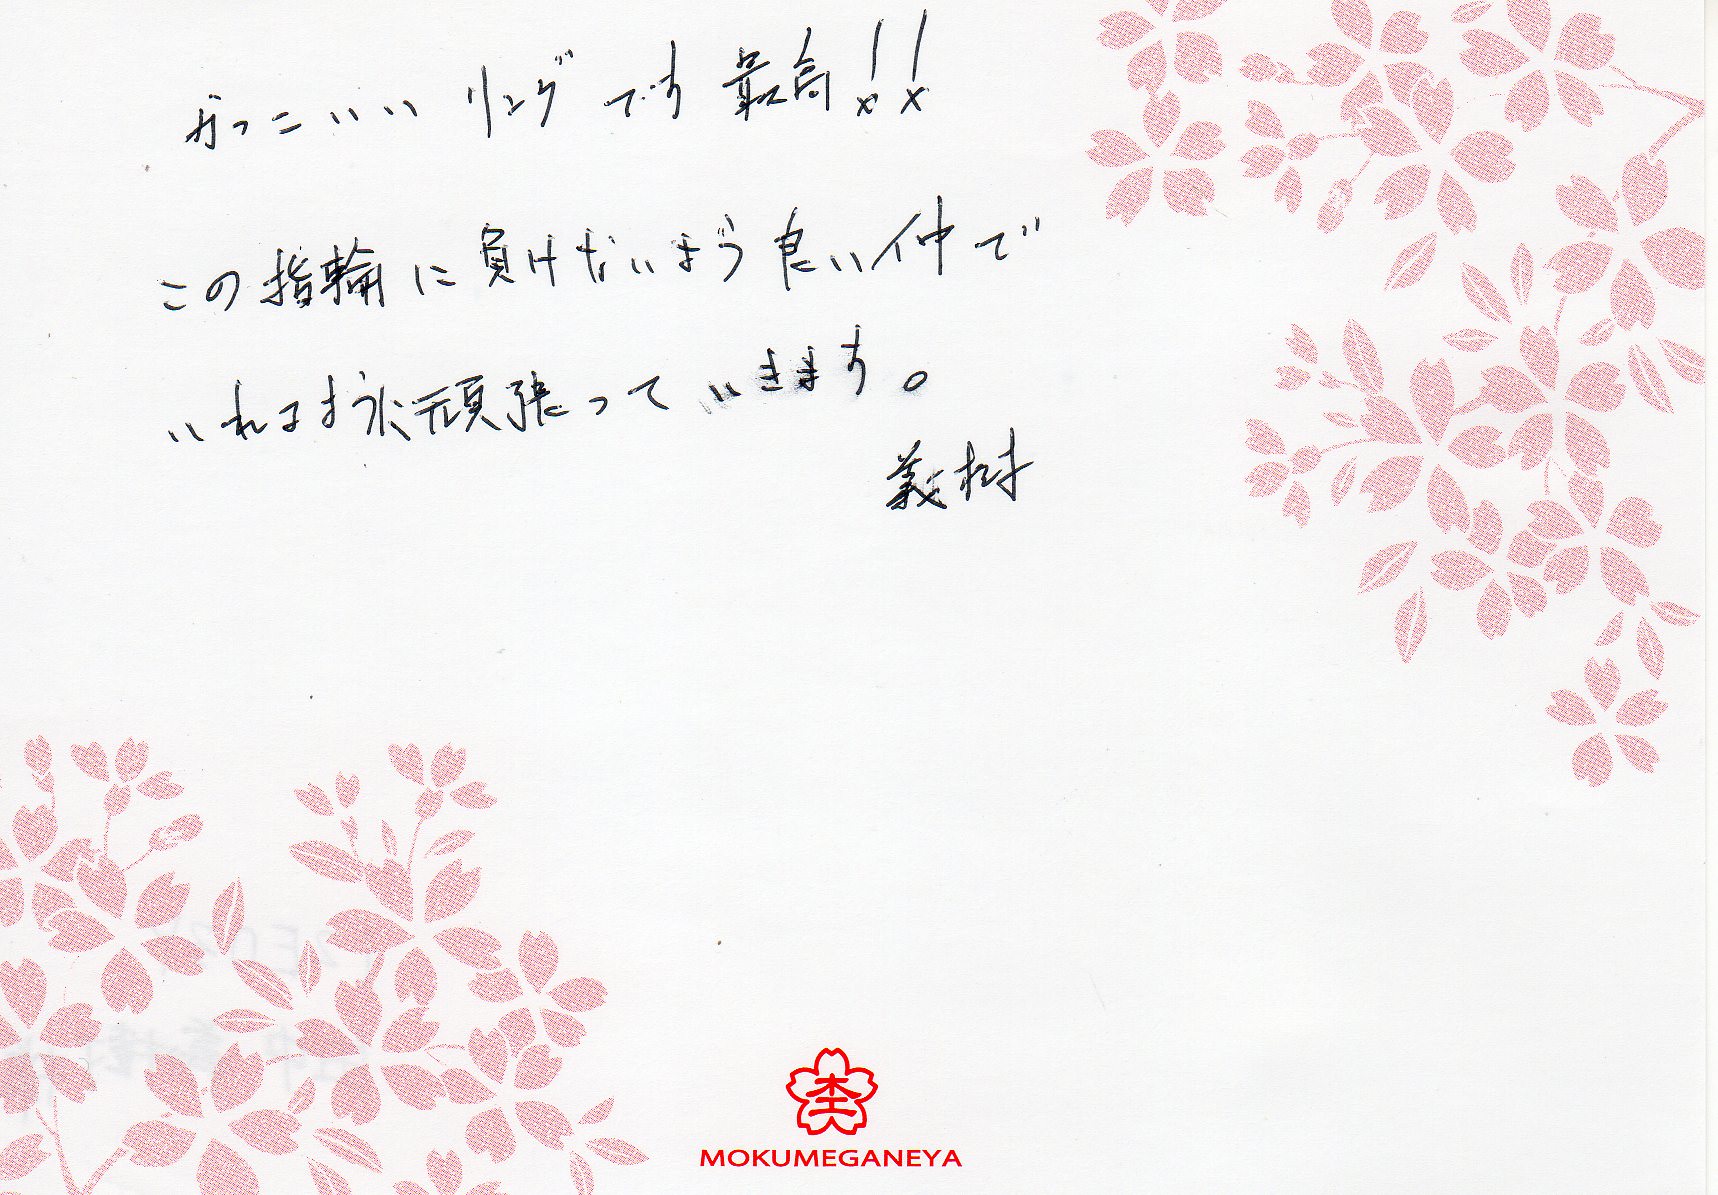 かっこいい リング です 最高!!
この指輪に負けないよう良い仲で
いれるように頑張っていきます。
義樹
MOKUMEGANEYA